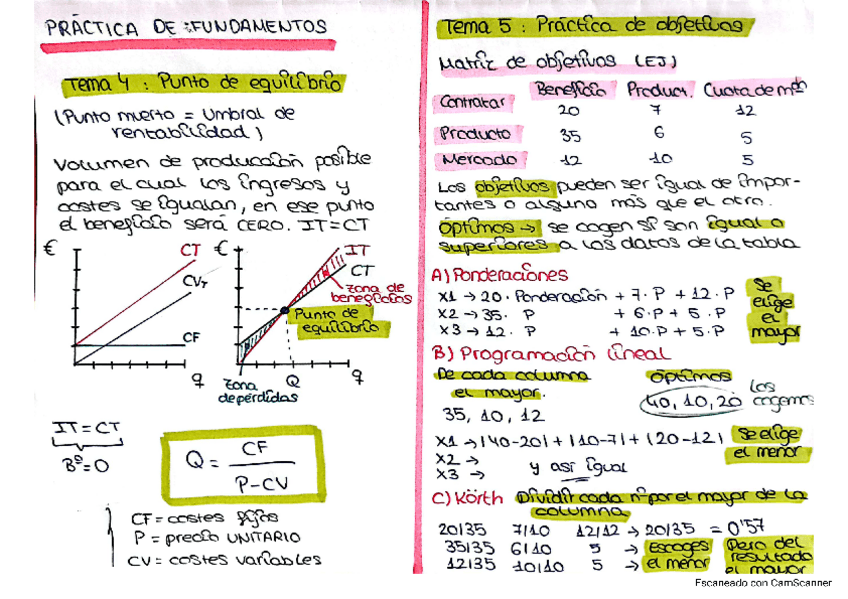 PRÁCTICA DE FUNDAMENTOS
Tema 4 : Punto de equilibrio
(Punto muerto = Umbral de
rentabilidad)
Volumen de producción posible
para el cual los ingresos y
costes se igualan, en ese punto
el beneficio será CERO. IT=CT
€
CT
CVT
CF
q
€
IT
CT
zona de
beneficios
Punto de
equilibrio
Zona
de pérdidas
Q
q
IT = CT
Bº=0
Q = CF / P-CV
CF = costes fijos
P = precio UNITARIO
CV = costes variables
Tema 5 : Práctica de objetivos
Matriz de objetivos (EJ)
Beneficio Product. Cuota de mdo
Contratar 20 7 12
Producto 35 6 5
Mercado 12 10 5
Los objetivos pueden ser igual de impor-
tantes o alguno más que el otro.
Óptimos → se cogen si son igual o
superiores a los datos de la tabla
A) Ponderaciones
X1 → 20 · Ponderación + 7 · P + 12 · P
X2 → 35 · P + 6 · P + 5 · P
X3 → 12 · P + 10 · P + 5 · P
Se
elige
el
mayor
B) Programación lineal
De cada columna
el mayor.
35, 10, 12
Óptimos
40, 10, 20
los
cogemos
X1 → |40-20| + |10-7| + |20-12|
X2 →
X3 →
y así igual
Se elige
el menor
C) Körth Dividir cada nº por el mayor de la
columna
20/35 7/10 12/12 → 20/35 = 0'57
35/35 6/10 5 → Escoges
12/35 10/10 5 → el menor
Pero del
resultado
el mayor
Escaneado con CamScanner